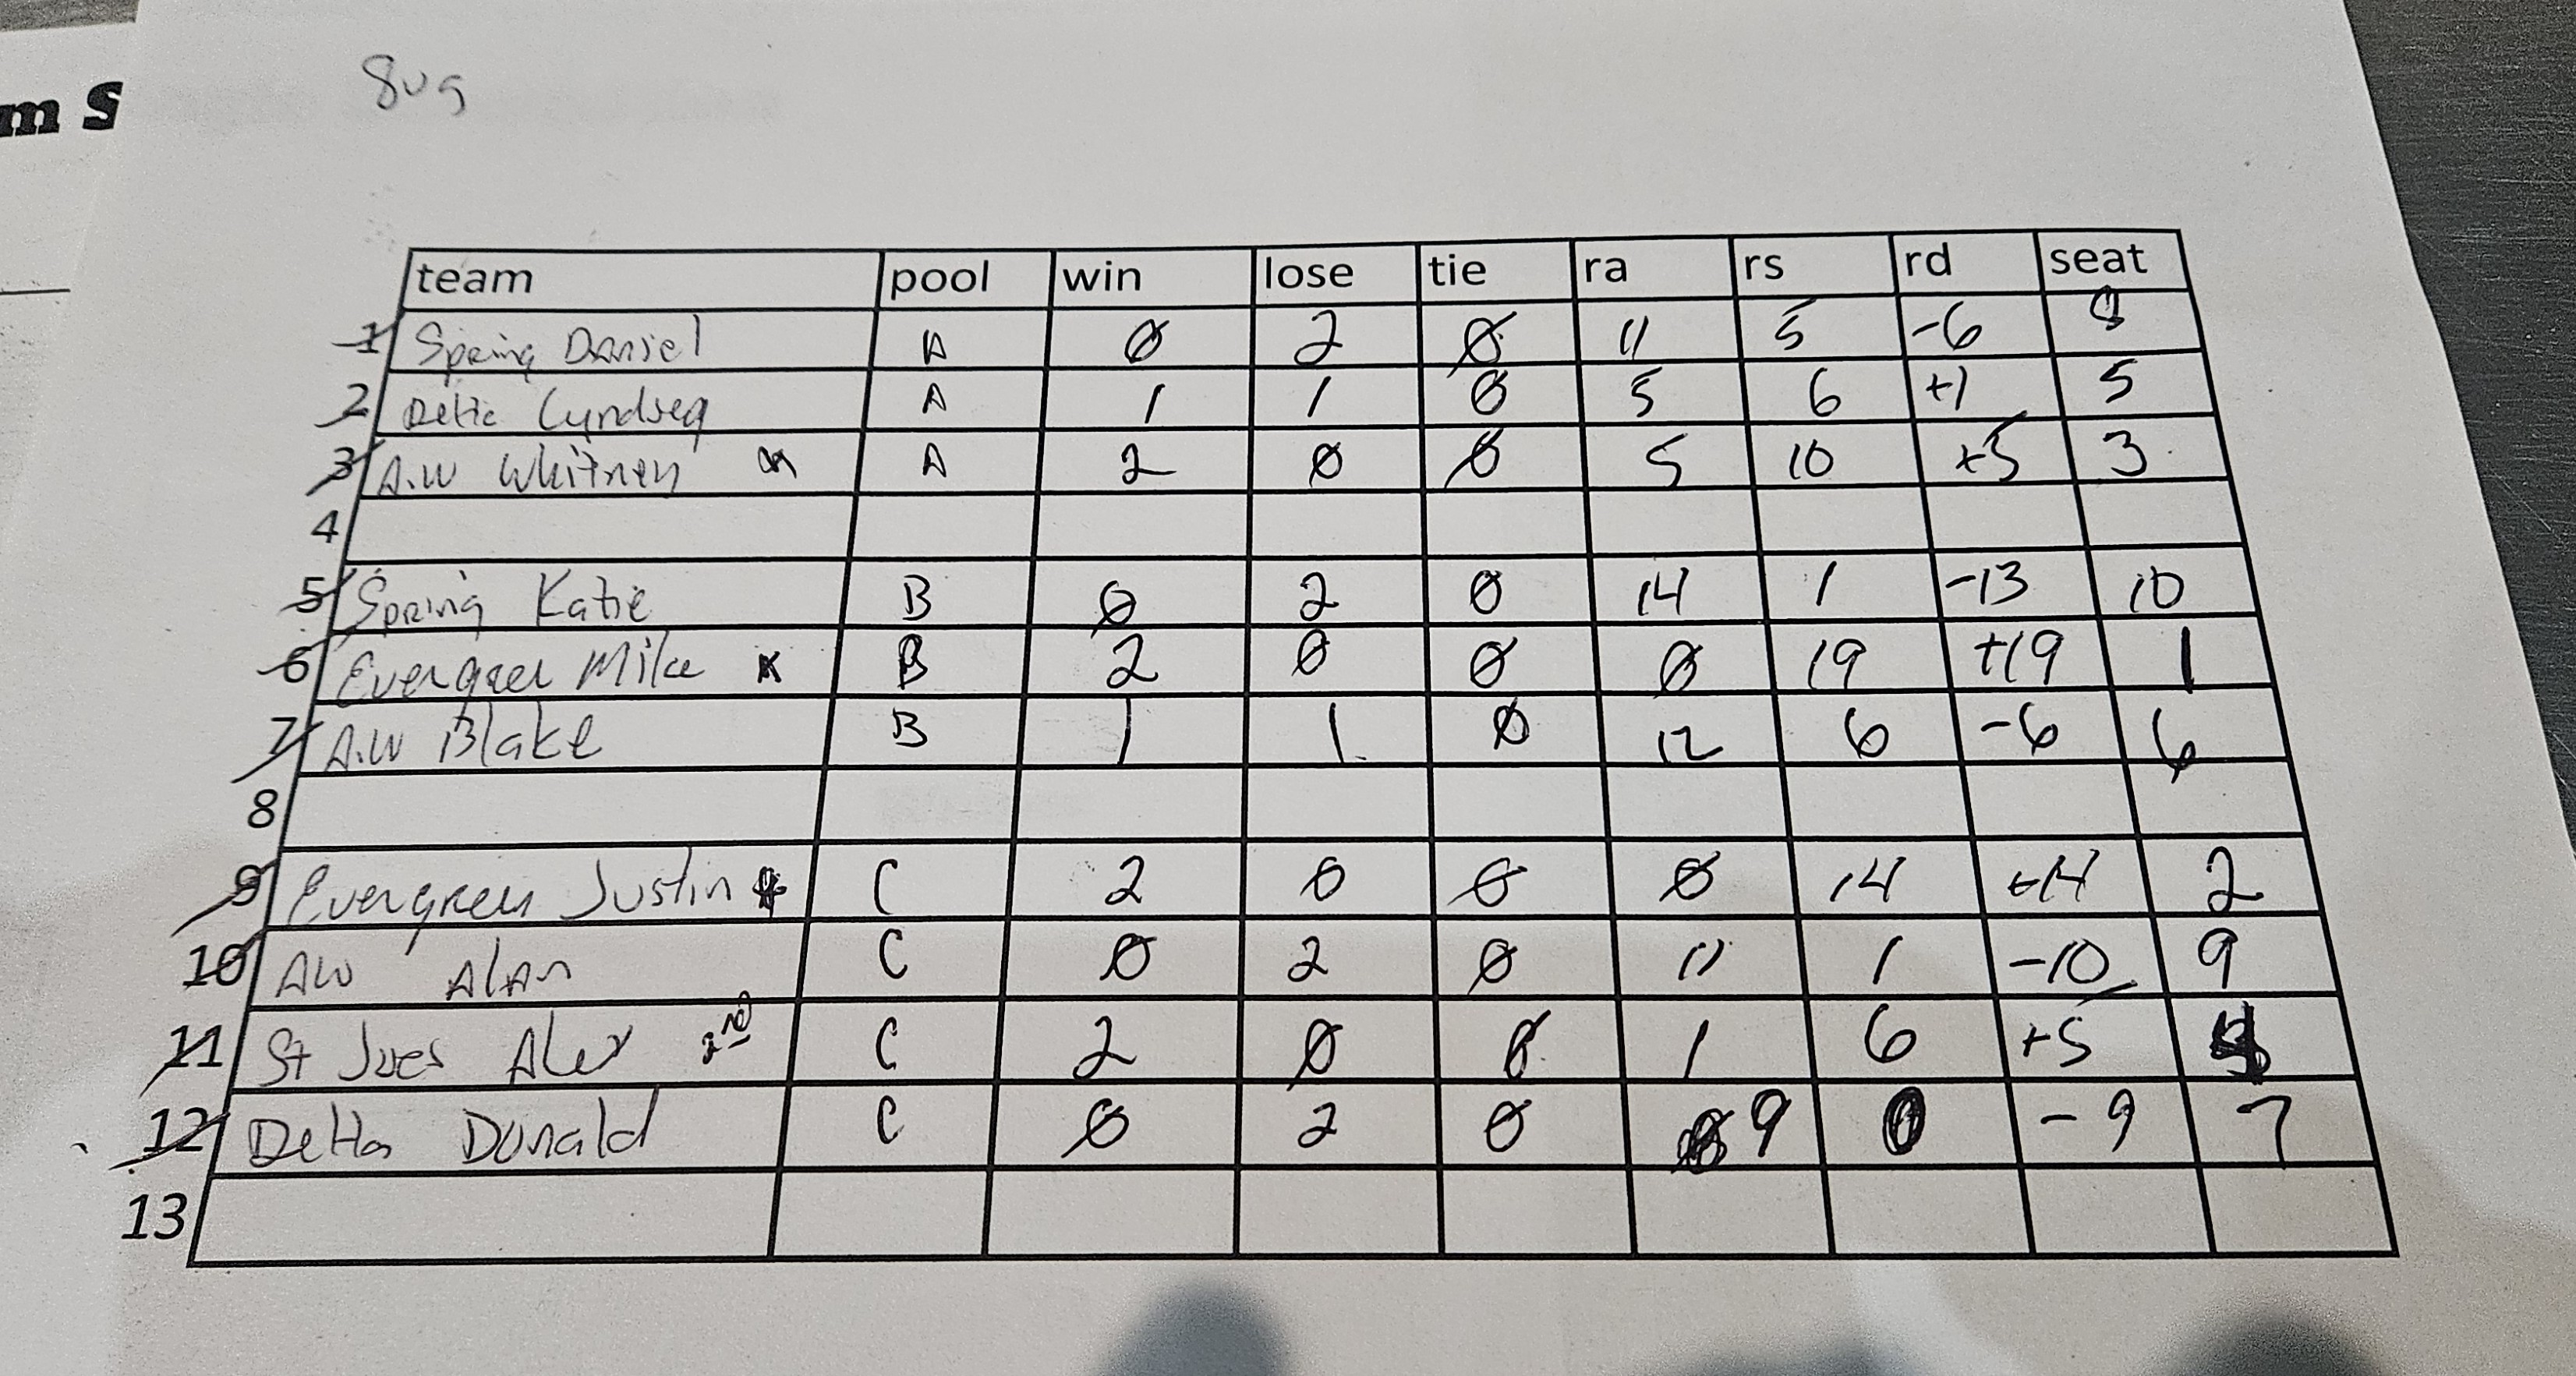 m S
8ug
team pool win lose tie ra rs rd seat
1 Spring Daniel A 0 2 0 11 5 -6 8
2 Delta Lyndsey A 1 1 0 5 6 +1 5
3 A.W Whitney A 2 0 0 5 10 +5 3
4
5 Spring Katie B 0 2 0 14 1 -13 10
6 Evergreen Mike x B 2 0 0 0 19 +19 1
7 A.W Blake B 1 1 0 12 6 -6 6
8
9 Evergreen Justin C 2 0 0 0 14 +14 2
10 AW Alan C 0 2 0 11 1 -10 9
11 St Joes Alex 2nd C 2 0 0 1 6 +5 4
12 Delta Donald C 0 2 0 9 0 -9 7
13